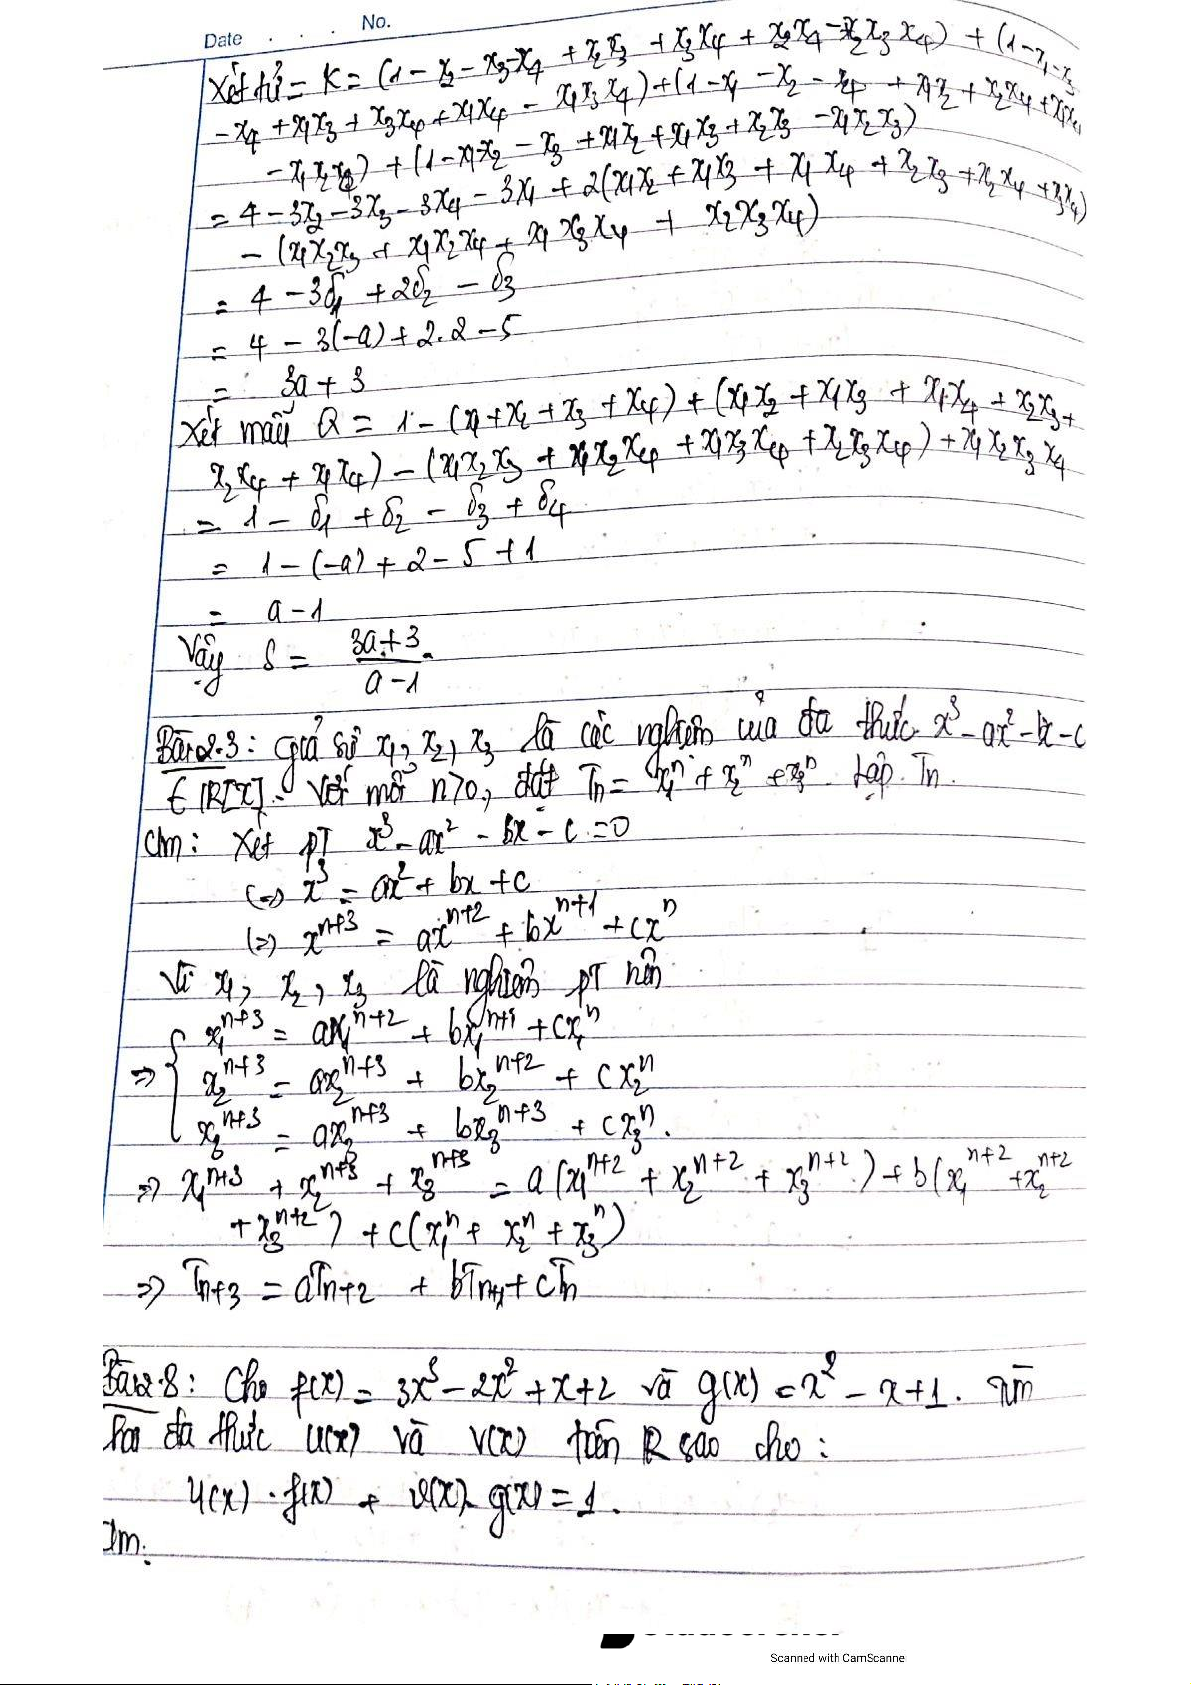 Date . . . No.
Xét tử = K = (1 - x₂ - x₃ - x₄ + x₂x₃ + x₃x₄ + x₂x₄ - x₂x₃x₄) + (1 - x₁ - x₃
- x₄ + x₁x₃ + x₃x₄ + x₁x₄ - x₁x₃x₄) + (1 - x₁ - x₂ - x₄ + x₁x₂ + x₂x₄ + x₁x₄
- x₁x₂x₄) + (1 - x₁ - x₂ - x₃ + x₁x₂ + x₁x₃ + x₂x₃ - x₁x₂x₃)
= 4 - 3x₂ - 3x₃ - 3x₄ - 3x₁ + 2(x₁x₂ + x₁x₃ + x₁x₄ + x₂x₃ + x₂x₄ + x₃x₄)
- (x₁x₂x₃ + x₁x₂x₄ + x₁x₃x₄ + x₂x₃x₄)
= 4 - 3δ₁ + 2δ₂ - δ₃
= 4 - 3(-a) + 2.2 - 5
= 3a + 3
Xét mẫu Q = 1 - (x₁ + x₂ + x₃ + x₄) + (x₁x₂ + x₁x₃ + x₁x₄ + x₂x₃ +
x₂x₄ + x₁x₄) - (x₁x₂x₃ + x₁x₂x₄ + x₁x₃x₄ + x₂x₃x₄) + x₁x₂x₃x₄
= 1 - δ₁ + δ₂ - δ₃ + δ₄
= 1 - (-a) + 2 - 5 + 1
= a - 1
Vậy S = (3a + 3)/(a - 1)
Bài 2.3: Giả sử x₁, x₂, x₃ là các nghiệm của đa thức x³ - ax² - bx - c
∈ R[X]. Với mỗi n>0, đặt Tn = x₁ⁿ + x₂ⁿ + x₃ⁿ. Lập Tn.
Cm: Xét PT x³ - ax² - bx - c = 0
(=) x³ = ax² + bx + c
(=) xⁿ⁺³ = axⁿ⁺² + bxⁿ⁺¹ + cxⁿ
Vì x₁, x₂, x₃ là nghiệm PT nên
x₁ⁿ⁺³ = ax₁ⁿ⁺² + bx₁ⁿ⁺¹ + cx₁ⁿ
=> { x₂ⁿ⁺³ = ax₂ⁿ⁺³ + bx₂ⁿ⁺² + cx₂ⁿ
x₃ⁿ⁺³ = ax₃ⁿ⁺³ + bx₃ⁿ⁺³ + cx₃ⁿ.
=> x₁ⁿ⁺³ + x₂ⁿ⁺³ + x₃ⁿ⁺³ = a(x₁ⁿ⁺² + x₂ⁿ⁺² + x₃ⁿ⁺²) + b(x₁ⁿ⁺² + x₂ⁿ⁺²
+ x₃ⁿ⁺²) + c(x₁ⁿ + x₂ⁿ + x₃ⁿ)
=> Tn+3 = aTn+2 + bTn+1 + cTn
Bài 2.8: Cho f(x) = 3x³ - 2x² + x + 2 và g(x) = x² - x + 1. Tìm
hai đa thức u(x) và v(x) trên R sao cho:
u(x) . f(x) + v(x). g(x) = 1.
Scanned with CamScanne